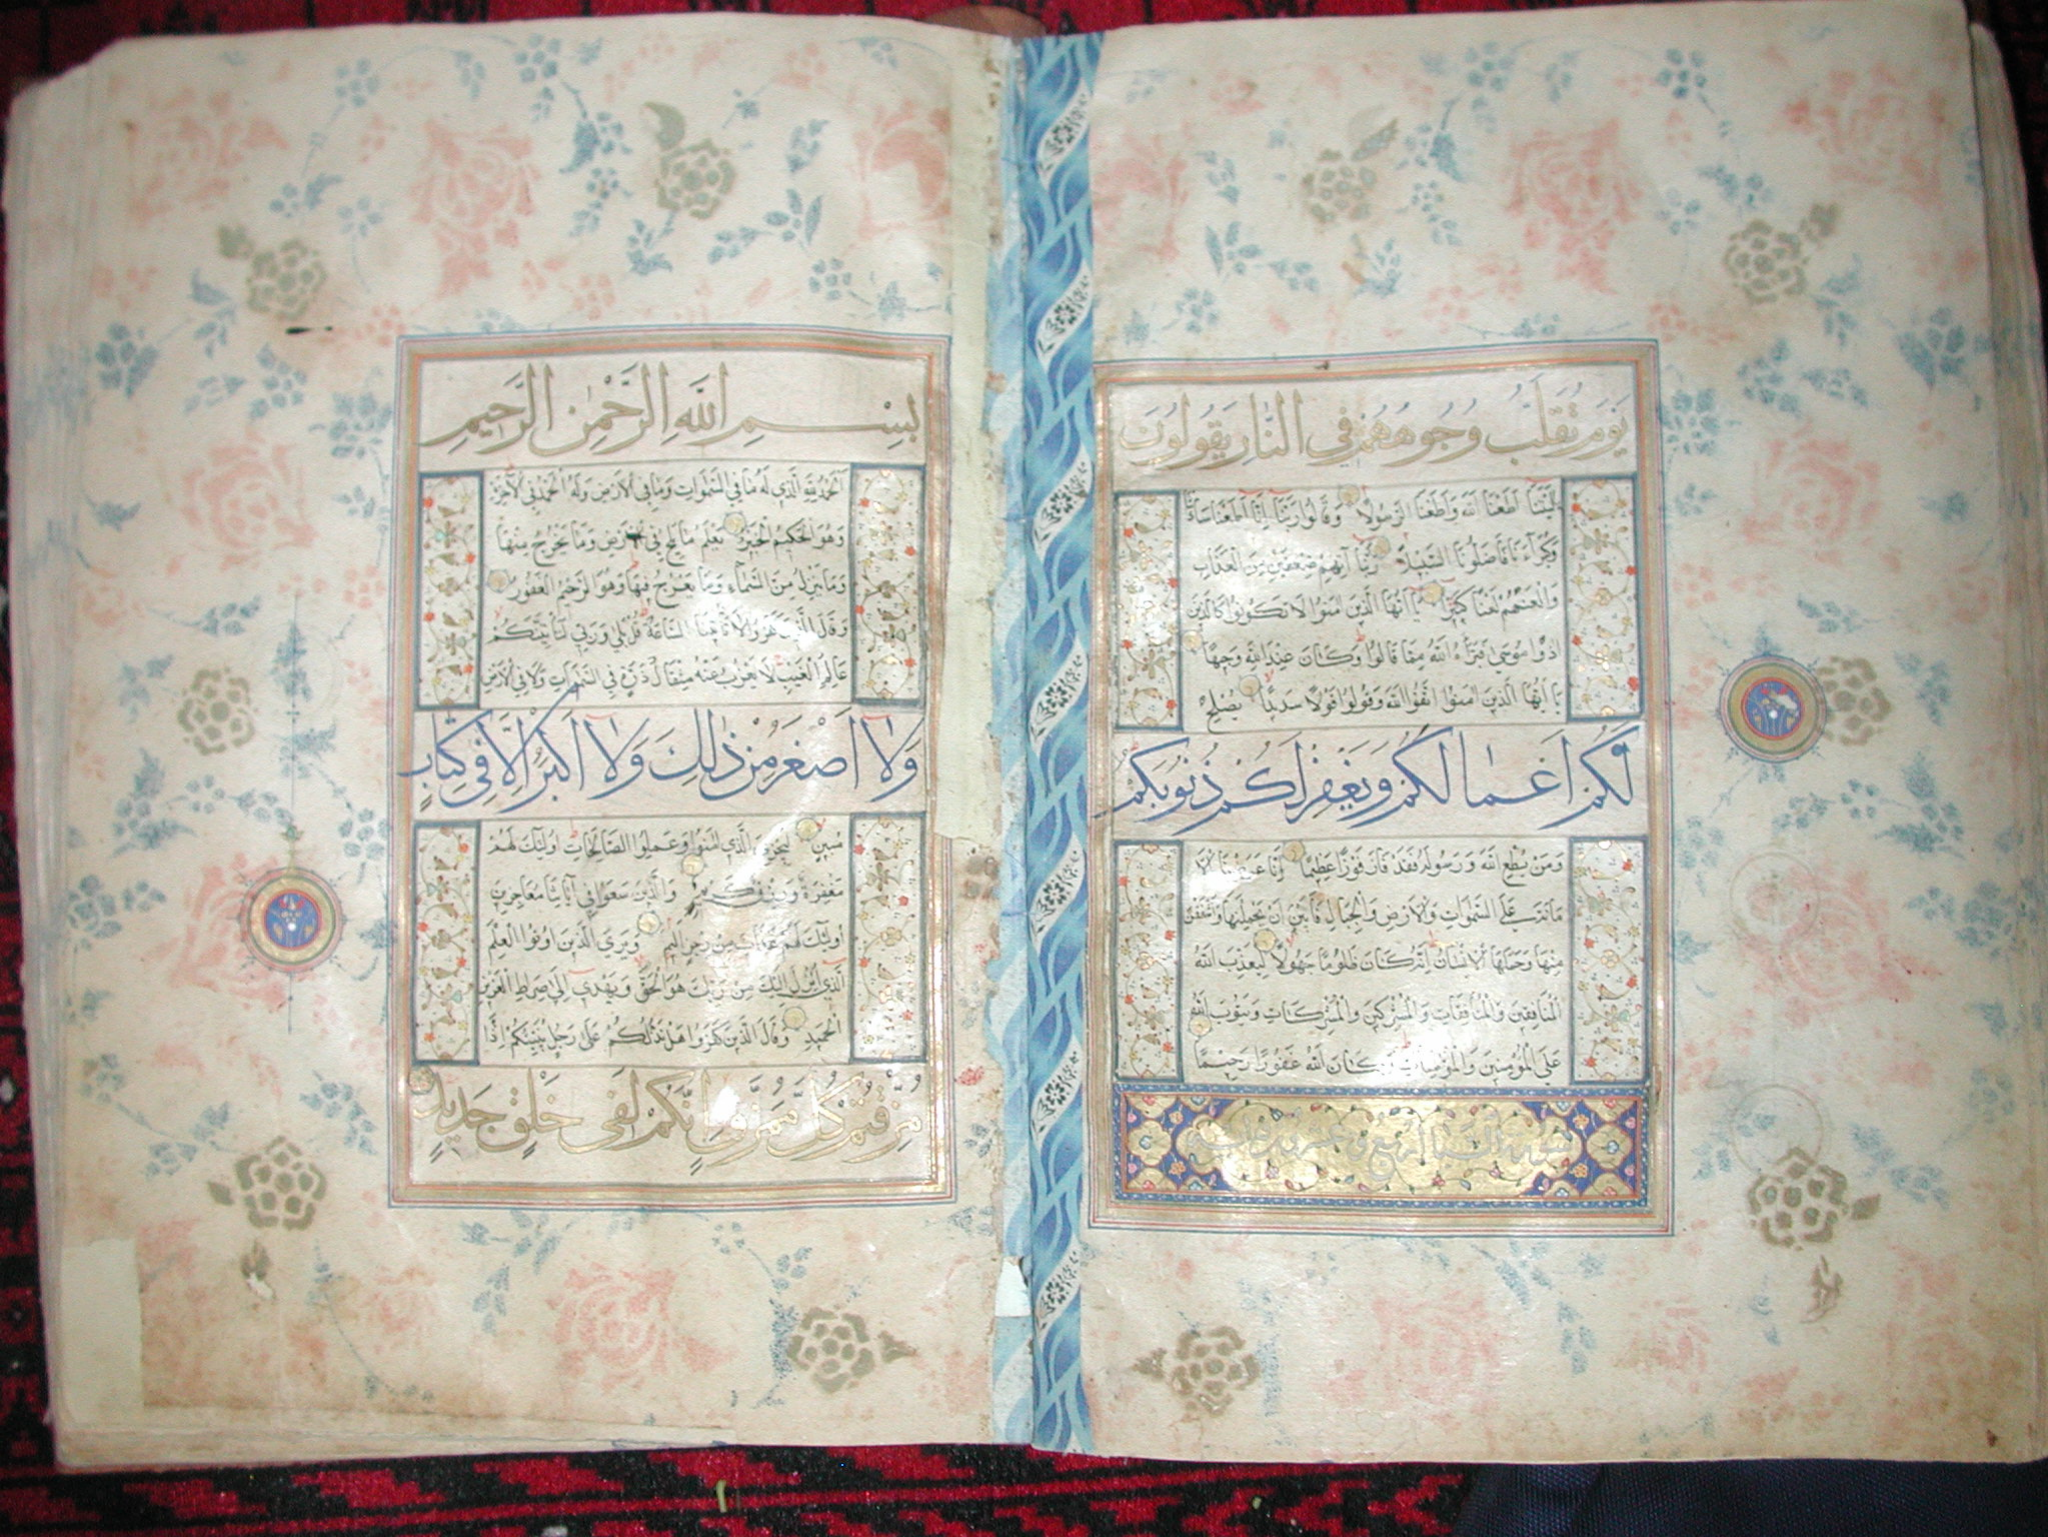 يَوْمَ تُقَلَّبُ وُجُوهُهُمْ فِي النَّارِ يَقُولُونَ
يَالَيْتَنَا أَطَعْنَا اللّٰهَ وَأَطَعْنَا الرَّسُولَا وَقَالُوا رَبَّنَا إِنَّا أَطَعْنَا سَادَتَنَا
وَكُبَرَآءَنَا فَأَضَلُّونَا السَّبِيلَا رَبَّنَا آتِهِمْ ضِعْفَيْنِ مِنَ الْعَذَابِ
وَالْعَنْهُمْ لَعْنًا كَبِيرًا يَا أَيُّهَا الَّذِينَ آمَنُوا لَا تَكُونُوا كَالَّذِينَ
آذَوْا مُوسَى فَبَرَّأَهُ اللّٰهُ مِمَّا قَالُوا وَكَانَ عِنْدَ اللّٰهِ وَجِيهًا
يَا أَيُّهَا الَّذِينَ آمَنُوا اتَّقُوا اللّٰهَ وَقُولُوا قَوْلًا سَدِيدًا يُصْلِحْ
لَكُمْ أَعْمَالَكُمْ وَيَغْفِرْ لَكُمْ ذُنُوبَكُمْ
وَمَنْ يُطِعِ اللّٰهَ وَرَسُولَهُ فَقَدْ فَازَ فَوْزًا عَظِيمًا إِنَّا عَرَضْنَا الْأَ
مَانَةَ عَلَى السَّمٰوَاتِ وَالْأَرْضِ وَالْجِبَالِ فَأَبَيْنَ أَنْ يَحْمِلْنَهَا وَأَشْفَقْنَ
مِنْهَا وَحَمَلَهَا الْإِنْسَانُ إِنَّهُ كَانَ ظَلُومًا جَهُولًا لِيُعَذِّبَ اللّٰهُ
الْمُنَافِقِينَ وَالْمُنَافِقَاتِ وَالْمُشْرِكِينَ وَالْمُشْرِكَاتِ وَيَتُوبَ اللّٰهُ
عَلَى الْمُؤْمِنِينَ وَالْمُؤْمِنَاتِ وَكَانَ اللّٰهُ غَفُورًا رَحِيمًا
بِسْمِ اللّٰهِ الرَّحْمٰنِ الرَّحِيمِ
الْحَمْدُ لِلّٰهِ الَّذِي لَهُ مَا فِي السَّمٰوَاتِ وَمَا فِي الْأَرْضِ وَلَهُ الْحَمْدُ فِي الْآخِرَةِ
وَهُوَ الْحَكِيمُ الْخَبِيرُ يَعْلَمُ مَا يَلِجُ فِي الْأَرْضِ وَمَا يَخْرُجُ مِنْهَا
وَمَا يَنْزِلُ مِنَ السَّمَآءِ وَمَا يَعْرُجُ فِيهَا وَهُوَ الرَّحِيمُ الْغَفُورُ
وَقَالَ الَّذِينَ كَفَرُوا لَا تَأْتِينَا السَّاعَةُ قُلْ بَلَى وَرَبِّي لَتَأْتِيَنَّكُمْ
عَالِمِ الْغَيْبِ لَا يَعْزُبُ عَنْهُ مِثْقَالُ ذَرَّةٍ فِي السَّمٰوَاتِ وَلَا فِي الْأَرْضِ
وَلَا أَصْغَرُ مِنْ ذٰلِكَ وَلَا أَكْبَرُ إِلَّا فِي كِتَابٍ
مُبِينٍ لِيَجْزِيَ الَّذِينَ آمَنُوا وَعَمِلُوا الصَّالِحَاتِ أُولٰئِكَ لَهُمْ
مَغْفِرَةٌ وَرِزْقٌ كَرِيمٌ وَالَّذِينَ سَعَوْا فِي آيَاتِنَا مُعَاجِزِينَ
أُولٰئِكَ لَهُمْ عَذَابٌ مِنْ رِجْزٍ أَلِيمٌ وَيَرَى الَّذِينَ أُوتُوا الْعِلْمَ
الَّذِي أُنْزِلَ إِلَيْكَ مِنْ رَبِّكَ هُوَ الْحَقَّ وَيَهْدِي إِلَى صِرَاطِ الْعَزِيزِ
الْحَمِيدِ وَقَالَ الَّذِينَ كَفَرُوا هَلْ نَدُلُّكُمْ عَلَى رَجُلٍ يُنَبِّئُكُمْ إِذَا
مُزِّقْتُمْ كُلَّ مُمَزَّقٍ إِنَّكُمْ لَفِي خَلْقٍ جَدِيدٍ